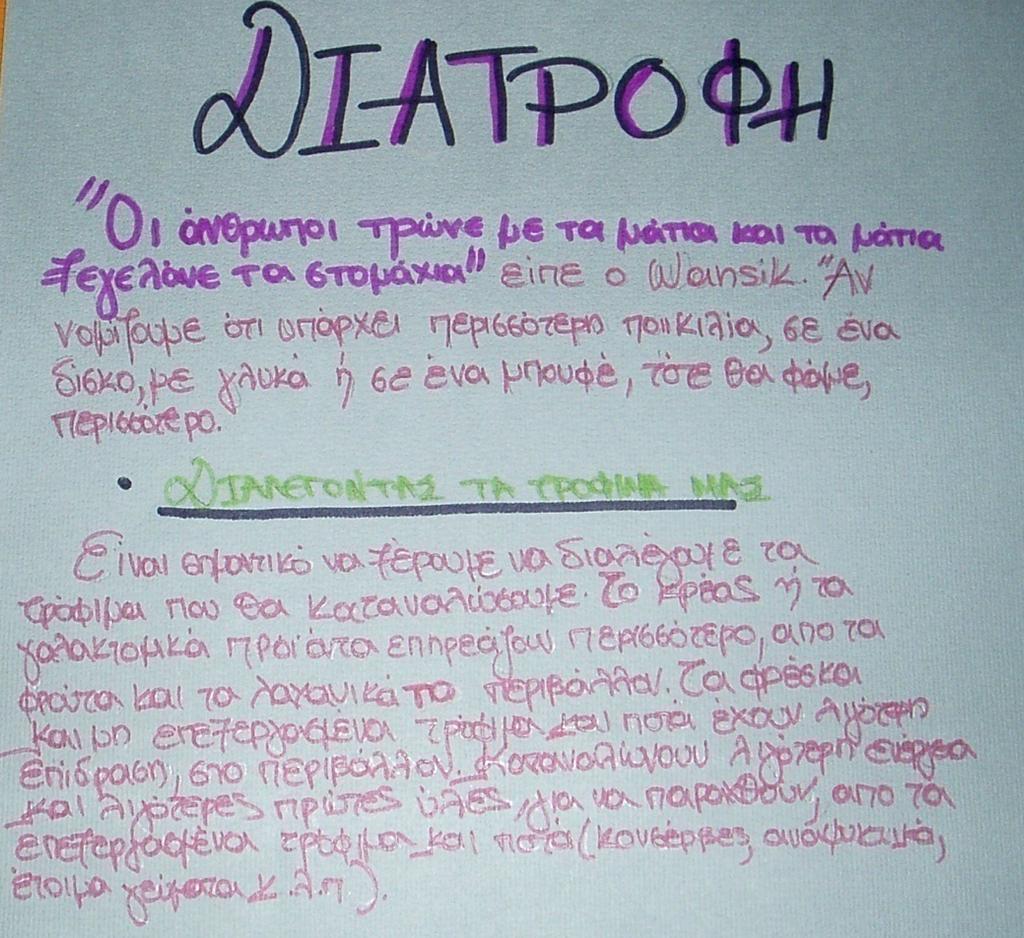 ΔΙΑΤΡΟΦΗ
"Οι άνθρωποι τρώνε με τα μάτια και τα μάτια
ξεγελάνε τα στομάχια" είπε ο Wansik. "Αν
νομίζουμε ότι υπάρχει περισσότερη ποικιλία, σε ένα
δίσκο, με γλυκά ή σε ένα μπουφέ, τότε θα φάμε,
περισσότερο.
• ΔΙΑΛΕΓΟΝΤΑΣ ΤΑ ΤΡΟΦΙΜΑ ΜΑΣ
Είναι σημαντικό να ξέρουμε να διαλέγουμε τα
τρόφιμα που θα καταναλώσουμε. Το κρέας ή τα
γαλακτομικά προϊόντα επηρεάζουν περισσότερο, απο τα
φρούτα και τα λαχανικά το περιβάλλον. Τα φρέσκα
και μη επεξεργασμένα τρόφιμα και ποτά έχουν λιγότερη
επίδραση, στο περιβάλλον. Καταναλώνουν λιγότερη ενέργεια
και λιγότερες πρώτες ύλες, για να παραχθούν, απο τα
επεξεργασμένα τρόφιμα και ποτά (κονσέρβες, αναψυκτικά,
έτοιμα γεύματα κ.λ.π).